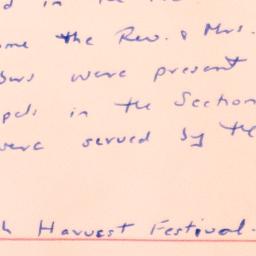 d in
me the Rev. & Mrs.
bers were present
pels in the Section
were served by the
h Harvest Festival.